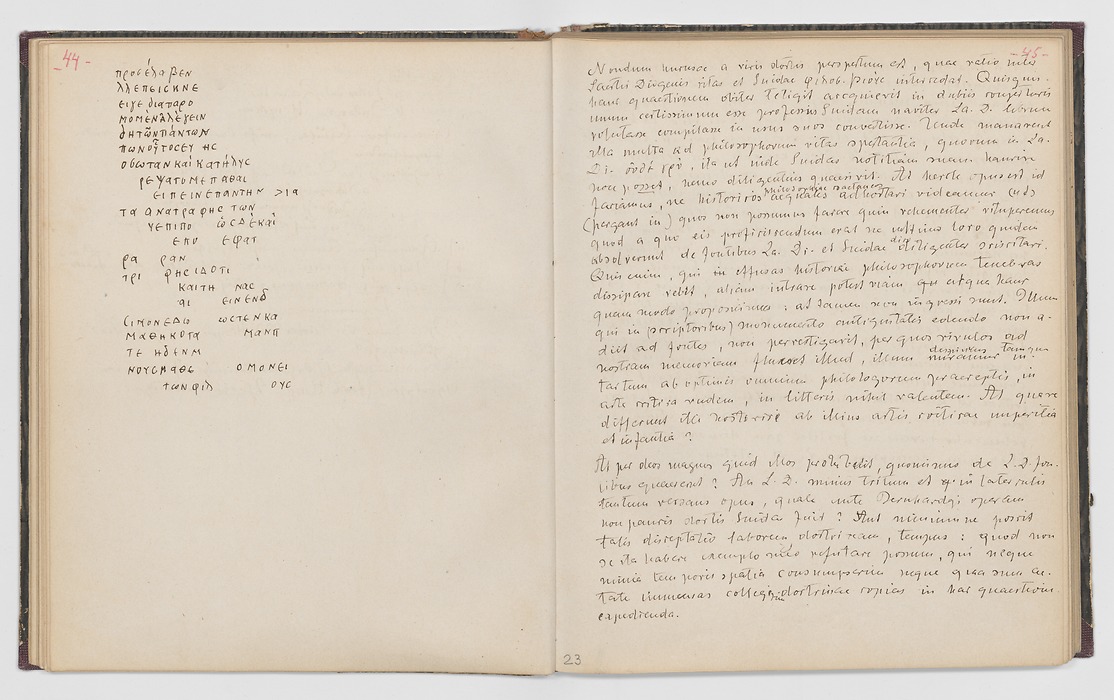 -44-
προσέλαβεν
λλεπεισκνε
ειγε διαπαρο
μομενλλεγειν
δητῶνπάντων
πωνοὗτοσευ ης
οσωτανκαίκατήλυς
ρεψατομεπαθαι
ειπεινεπαντην >ια
τα ανατραφης των
γεπιπο ὡςδὲκαί
επο εφατ
ρα ραν
τρι φηςιδοτι
καιτη νας
αι εινενδ
ςιμονεδω ωςτενκα
μαθηκοτα μανπ
τε ηδενμ
νουςμαθε ομονει
τωνφιλ ους
-45-
Nondum hucusce a viris doctis perspectum est, quae ratio inter
Laertii Diogenis vitas et Suidae φιλοσ. βίους intercedat. Quisquis
hanc quaestionem obiter tetigit acquievit in dubiis conjecturis
unum certissimum esse professus Suidam naviter La. D. librum
volutasse compilasse in usus suos convertisse. Unde manarent
illa multa ad philosophorum vitas spectantia, quorum in La.
Di. οὐδὲ γρῦ, ita ut inde Suidas notitiam suam haurire
non posset, nemo diligentius quaesivit. At hercle opus est id
faciamus, ne historicos philosophiae aequales adhortari videamur (ut)
(pergant in) quos non possumus facere quin vehementer vituperemus
quod a quo eis proficiscendum erat ne ultimo loco quidem
absolverunt de fontibus La. Di. et Suidae diligenter sciscitari.
Quis enim, qui in effusas historiae philosophorum tenebras
dissipare velit, aliam intrare potest viam atque hanc
quam modo proposuimus: at tamen non ingressi sunt. Illum
qui in (scriptoribus) monumento antiquitatis edendo non a-
diit ad fontes, non pervestigavit, per quos rivulos ad
nostram memoriam fluxset illud, illum miramur dicimus tamquam in-
tactum ab optimis omnium philologorum praeceptis, in
arte critica rudem, in litteris nihil valentem. At quare
differunt illi historici ab illius artis criticae imperitia
et infantia?
At per deos magnos quid illos prohibebit, quominus de L. D. fon-
tibus quaererent? An L. D. minus tritum et in latebris
tantum versans opus, quale ante Bernhardys operam
non paucis doctis Suidas fuit? Aut nimiumne poscit
talis disceptatio laborem doctrinam, tempus: quod non
se ita habere exemplo meo refutare possum, qui neque
nimia temporis spatia consumpserim neque qua sum ae-
tate immensas collegerim doctrinae copias in hac quaestione
expedienda.
23